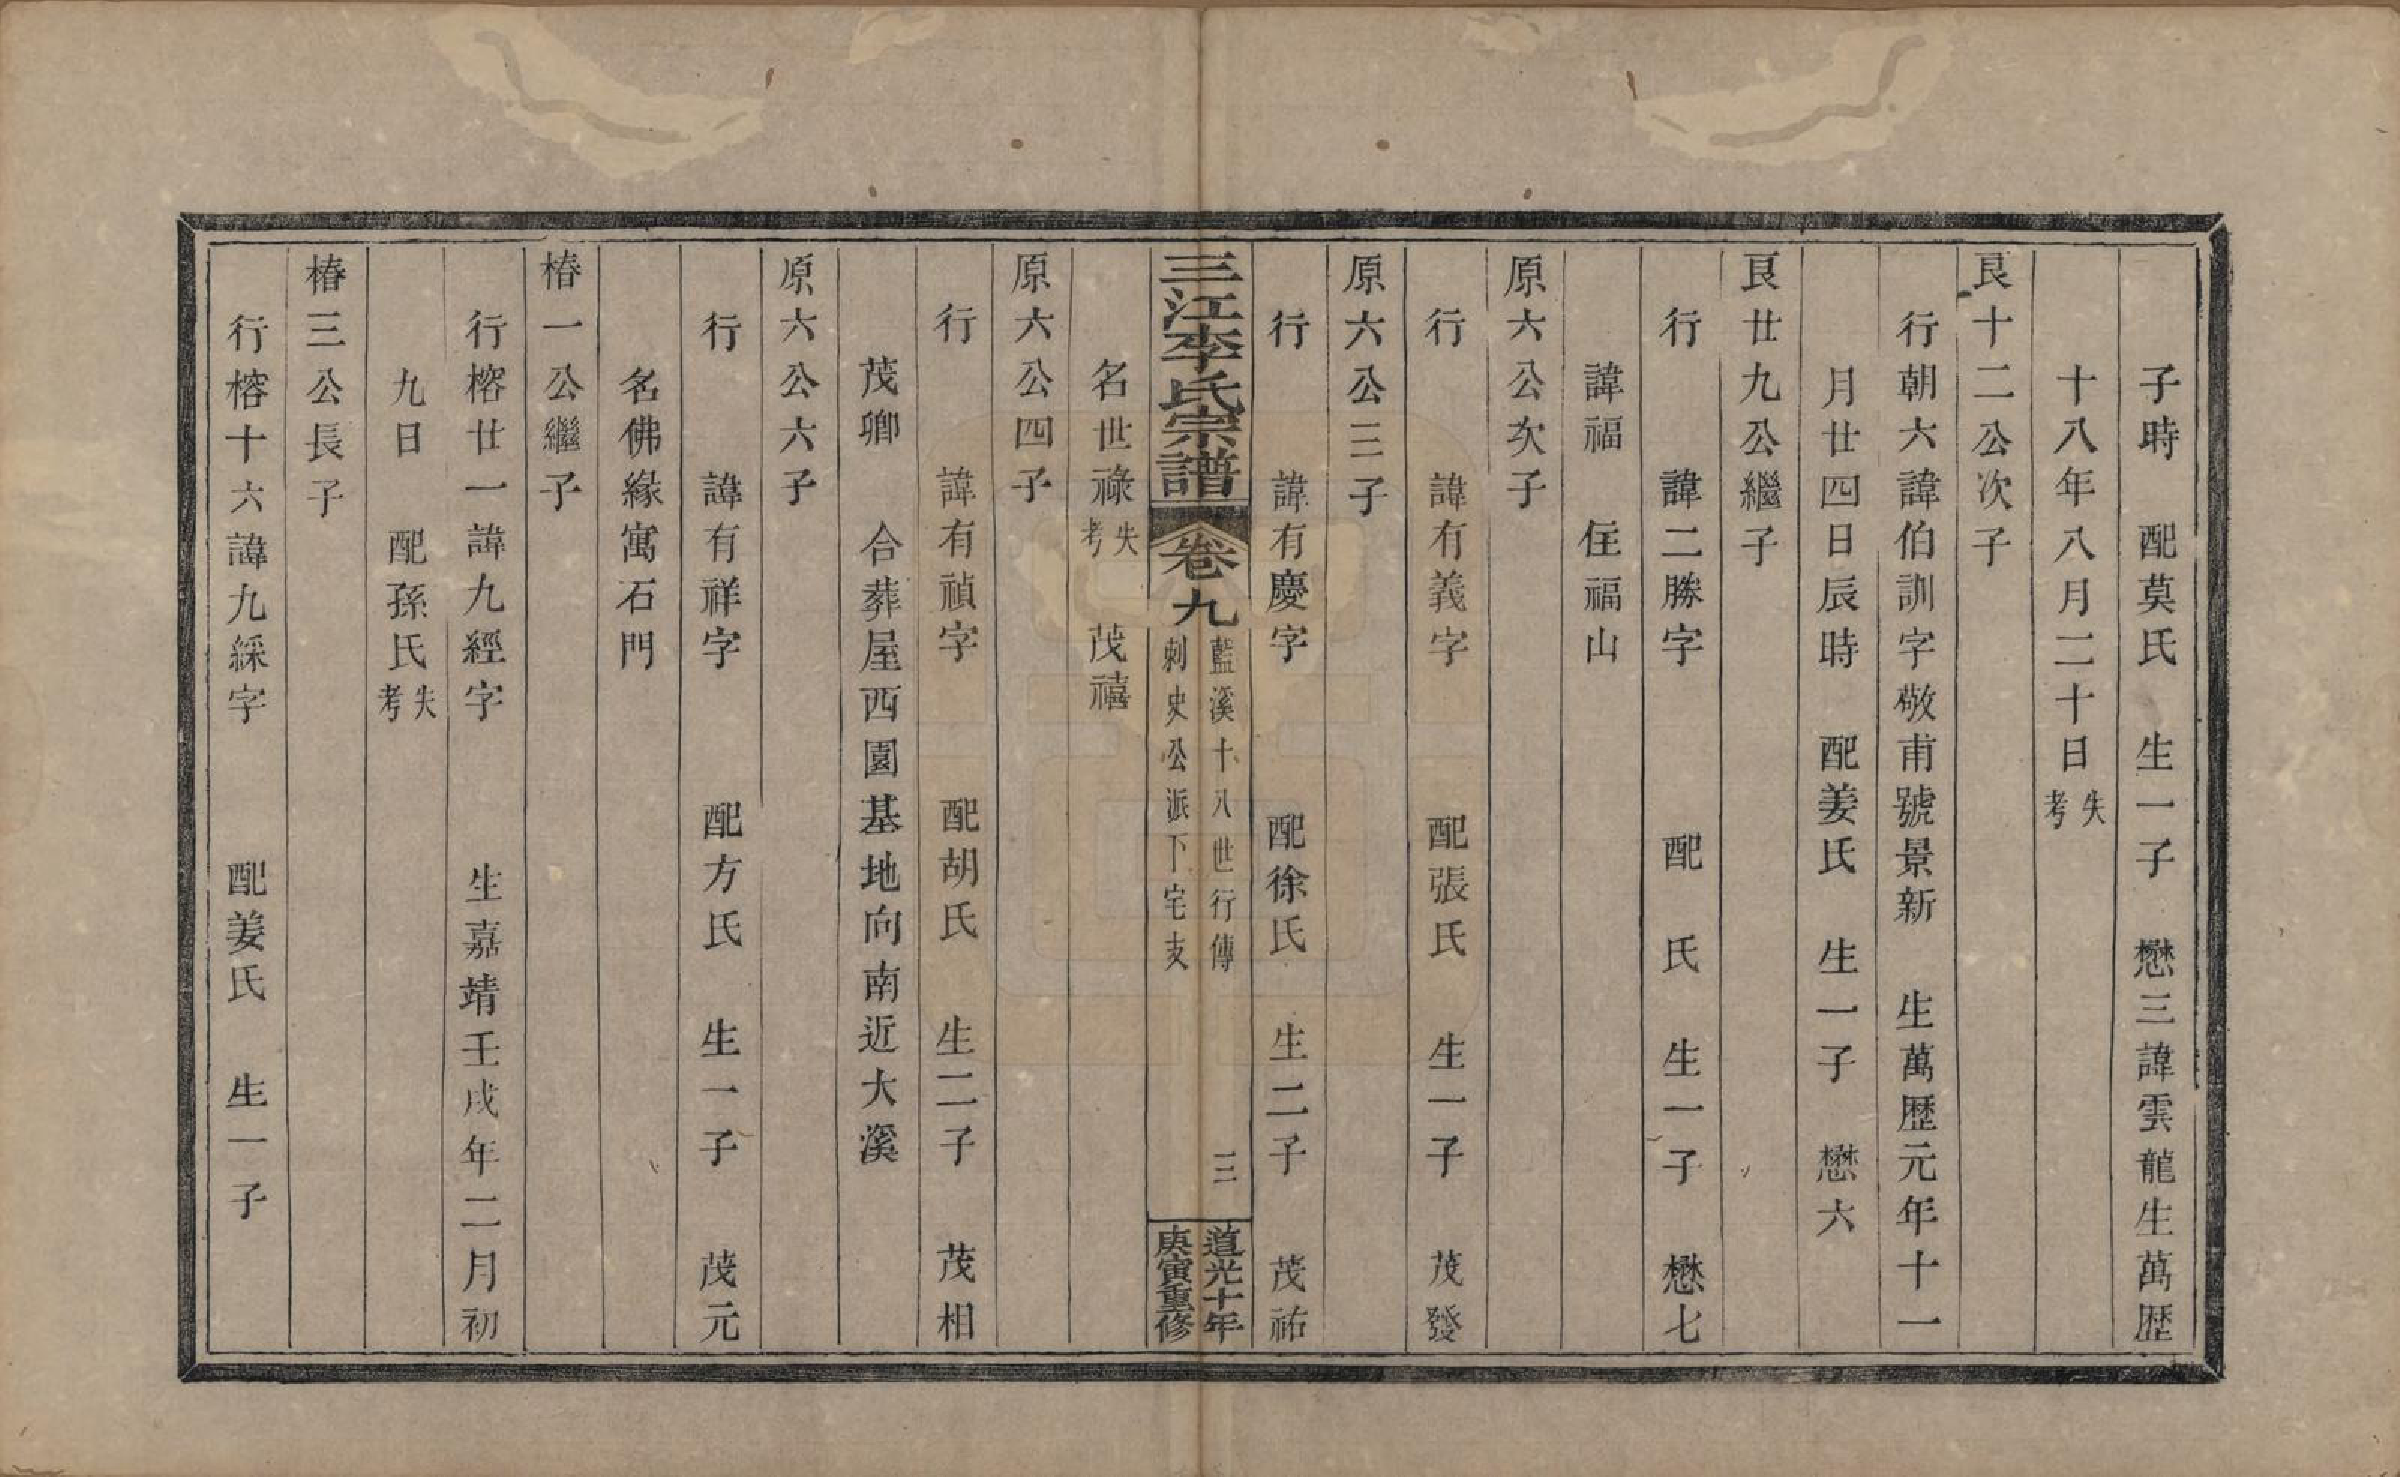 子時　配莫氏　生一子　懋三諱雲龍生萬歷
十八年八月二十日失考
艮十二公次子
行朝六諱伯訓字敬甫號景新　生萬歷元年十一
月廿四日辰時　配姜氏　生一子　懋六
艮廿九公繼子
行　諱二勝字　配　氏　生一子　懋七
諱福　住福山
原六公次子
行　諱有義字　配張氏　生一子　茂發
原六公三子
行　諱有慶字　配徐氏　生二子　茂祐
三江李氏宗譜　卷九　藍溪十八世行傳　三
刺史公派下宅支
道光十年
庚寅重修
名世祿失考　茂禧
原六公四子
行　諱有禎字　配胡氏　生二子　茂相
茂卿　合葬屋西園基地向南近大溪
原六公六子
行　諱有祥字　配方氏　生一子　茂元
名佛緣寓石門
椿一公繼子
行榕廿一諱九經字　生嘉靖壬戌年二月初
九日　配孫氏失考
椿三公長子
行榕十六諱九綵字　配姜氏　生一子